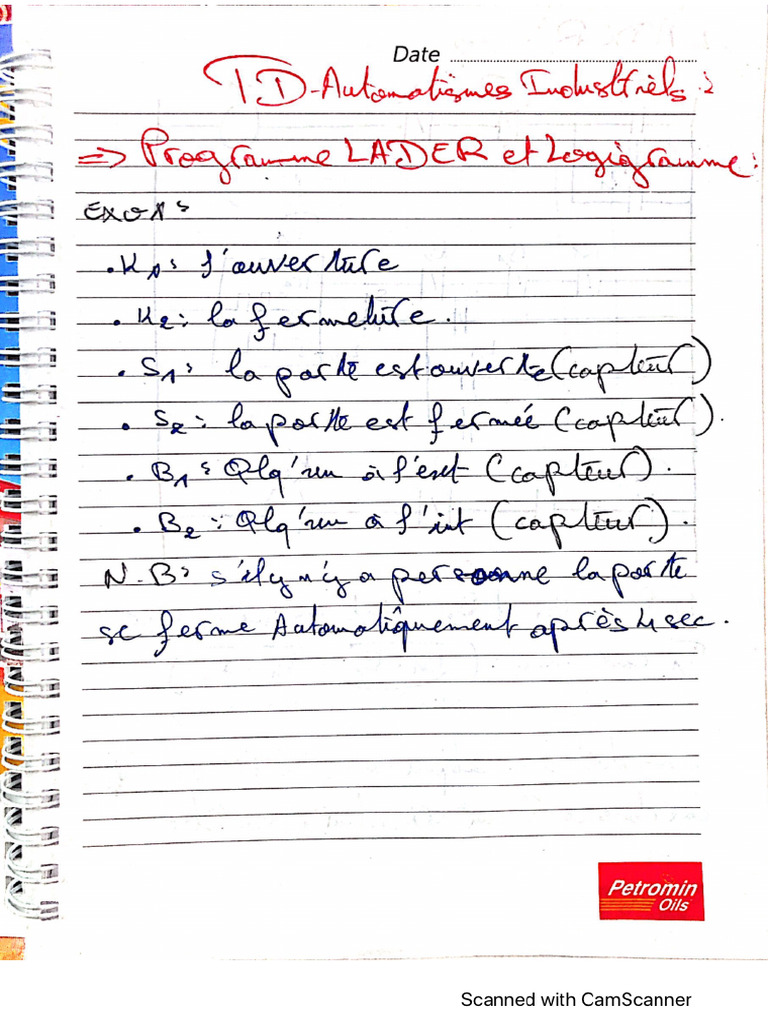 Date
TD-Automatismes Industriels :
=> Programme LADER et Logigramme :
Exo1 :
. K1 : l'ouverture
. K2 : la fermeture .
. S1 : la porte est ouverte (capteur)
. S2 : la porte est fermée (capteur) .
. B1 : Qlq'un à l'ext (capteur) .
. B2 : Qlq'un à l'int (capteur) .
N.B : s'il y n'y a personne la porte
se ferme Automatiquement après 4 sec .
Petromin
Oils
Scanned with CamScanner